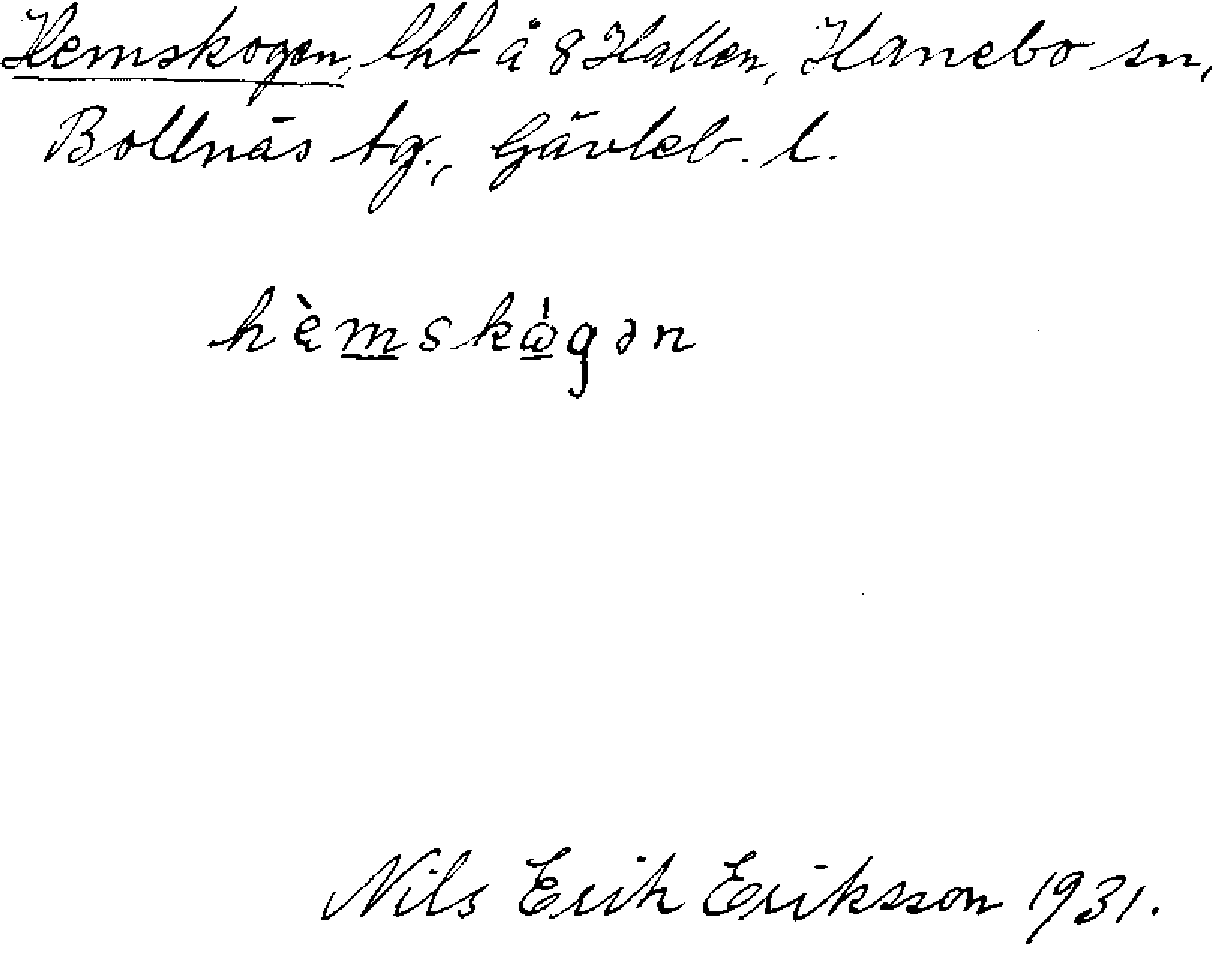 Hemskogen, lht å 8 Hallen, Hanebo sn,
Bollnäs tg., Gävleb. l.
hèmskǫ̀gən
Nils Erik Eriksson 1931.